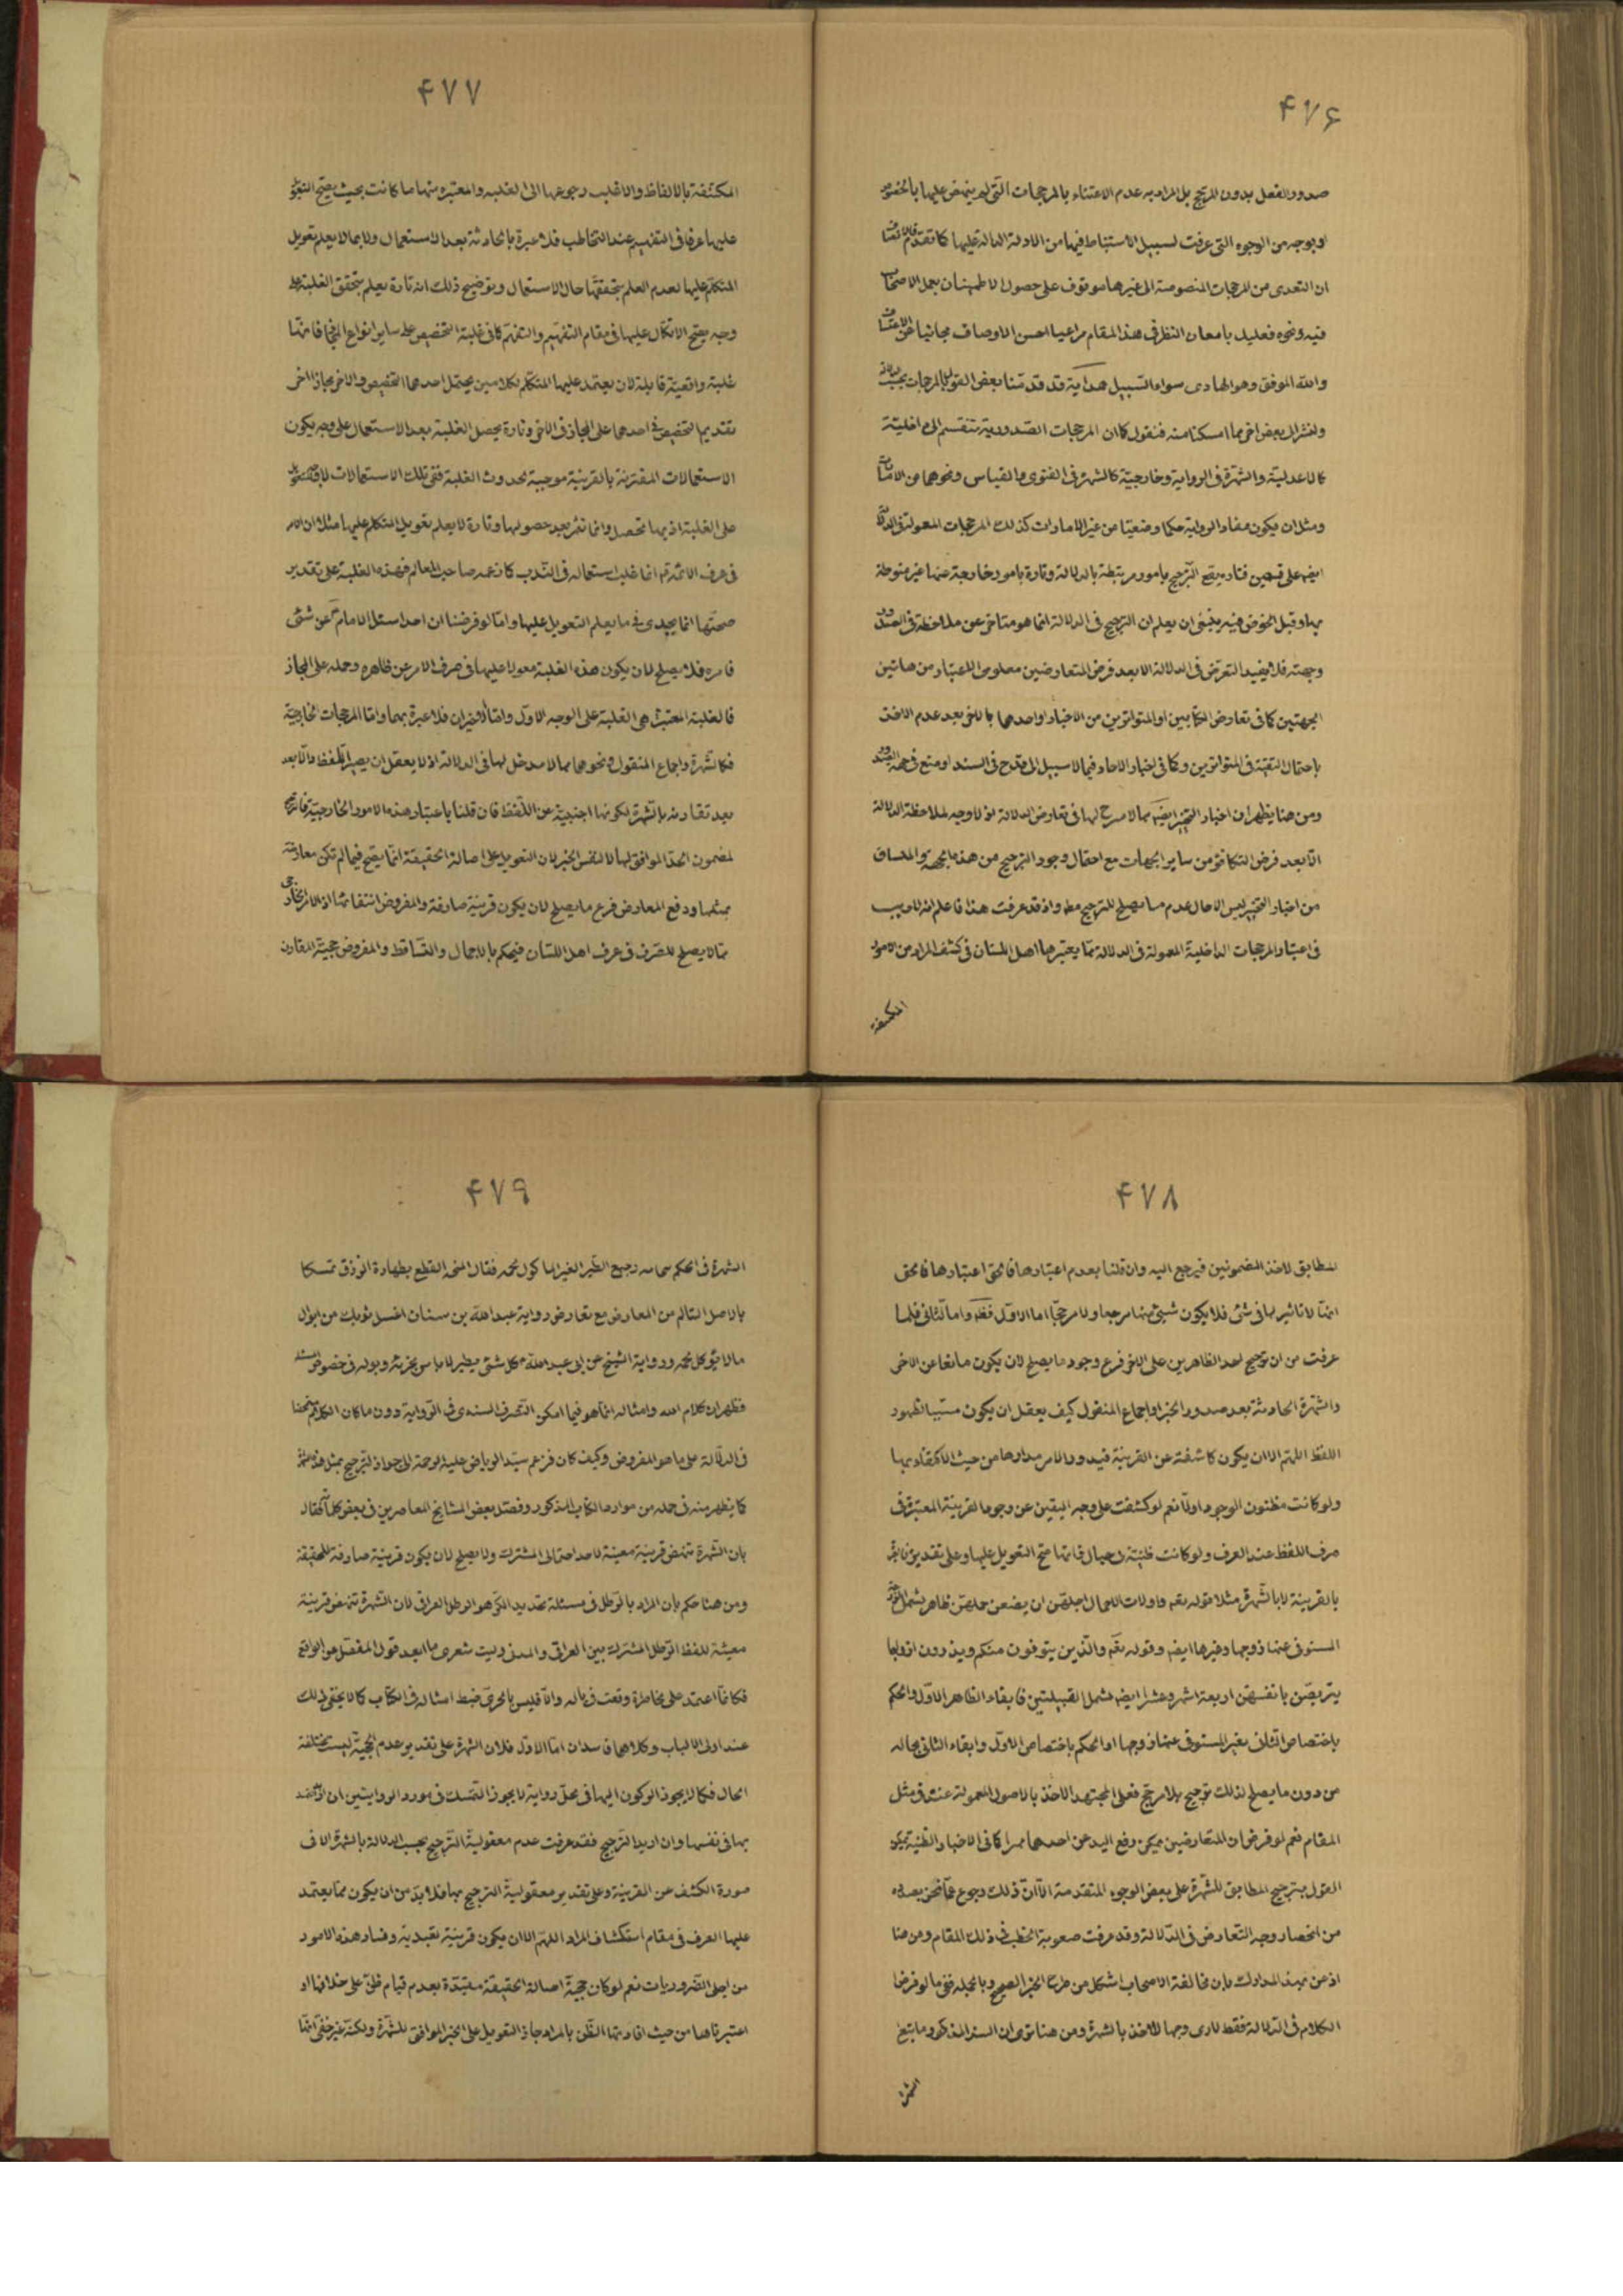 ۴۷۶
صدور الفعل بدون المرجح بل المراد به عدم الاعتناء بالمرجحات التى لم ينهض عليها بالخصوص
او بوجه من الوجوه التى عرفت لسبيل الاستنباط فيها من الادلة الدالة عليها كما تقدم
ان التعدى من المرجحات المنصوصة الى غيرها موقوف على حصول الاطمينان بعمل الاصحاب
فيه ونحوه فعليك بامعان النظر فى هذا المقام مراعيا احسن الاوصاف مجانبا عن الاعتساف
والله الموفق وهو الهادى سواء السبيل هداية قد قدمنا بعض القول بالمرجحات بحسب
ولنشر الى بعض اخر مما امكننا منه فنقول كما ان المرجحات الصدورية تنقسم الى داخلية
كالاعدلية والشهرة فى الرواية وخارجية كالشهرة فى الفتوى والقياس ونحوهما من
ومثل ان يكون مفاد الرواية حكما وضعيا من غير الامارات كذلك المرجحات المعمولة فى الدلالة
ايضا على قسمين فتارة يقع الترجيح بامور مرتبطة بالدلالة وتارة بامور خارجة عنها غير منوطة
بها وقبل الخوض فيه ينبغى ان يعلم ان الترجيح فى الدلالة انما هو متاخر عن ملاحظة فى الصدور
وجهته فلا يفيد التعرض فى الدلالة الا بعد فرض المتعارضين معلومى الاعتبار من هاتين
الجهتين كما فى تعارض الكتابين او المتواترين من الاخبار او احدهما بالاخر بعد عدم الاخذ
باحتمال التقية فى المتواترين وكما فى اخبار الاحاد فيما لا سبيل الى قدح فى السند او منع فى جهة الصدور
ومن هنا يظهر ان اخبار التخيير ايضا مما لا مسرح لها فى تعارض الدلالة اذ لا وجه لملاحظة الدلالة
الا بعد فرض التكافؤ من ساير الجهات مع احتمال وجود الترجيح من هذه الجهة والمنساق
من اخبار التخيير ليس الا حال عدم ما يصلح للترجيح مط واذ قد عرفت هذا فاعلم انه لا ريب
فى اعتبار المرجحات الداخلية المعمولة فى الدلالة مما يعتبرها اهل اللسان فى كشف المراد من الامور
المكتنفة
۴۷۷
المكتنفة بالالفاظ والاغلب رجوعها الى الغلبة والمعتبرة منها ما كانت بحيث يصح التعويل
عليها عرفا فى التفهيم عند التخاطب فلا عبرة بالحادثة بعد الاستعمال ولا بما لا يعلم تعويل
المتكلم عليها لعدم العلم بتحققها حال الاستعمال وتوضيح ذلك انه تارة يعلم بتحقق الغلبة على
وجه يصح الاتكال عليها فى مقام التفهيم والتفهم كما فى غلبة التخصيص على ساير انواع المجاز فانها
غلبة واقعية قابلة لان يعتمد عليها المتكلم بكلامين يحتمل احدهما التخصيص والاخر مجازا اخر
بتقديم التخصيص فى احدهما على المجاز فى الاخر وتارة يحصل الغلبة بعد الاستعمال على وجه يكون
الاستعمالات المقترنة بالقرينة موجبة لحدوث الغلبة ففى تلك الاستعمالات لا يصح التعويل
على الغلبة اذ بها تحصل وانما تثمر بعد حصولها وتارة لا يعلم تعويل المتكلم عليها مثل ان الامر
فى عرف الائمة انما غلب استعماله فى الندب كما زعمه صاحب المعالم فهذه الغلبة على تقدير
صحتها انما يجدى فى ما يعلم التعويل عليها واما لو فرضنا ان احدا سئل الامام عن شئ
فامره فلا يصلح لان يكون هذه الغلبة معولا عليها فى صرف الامر عن ظاهره وحمله على المجاز
فالغلبة المعتبرة هى الغلبة على الوجه الاول واما الاخيران فلا عبرة بهما واما المرجحات الخارجية
فكالشهرة واجماع المنقول ونحوهما مما لا مدخل لها فى الدلالة اذ لا يعقل ان يصير اللفظ دالا بعد
بعد تقارنه بالشهرة لكونها اجنبية عن اللفظ فان قلنا باعتبار هذه الامور الخارجية فالترجيح
لمضمون الحد الموافق لها لا لنفس الخبر لان التعويل على اصالة الحقيقة انما يصح فيما لم تكن معارضة
بمثلها ودفع المعارض فرع ما يصلح لان يكون قرينة صارفة والمفروض انتفائها اذ الامر الخارجى
مما لا يصلح للصرف فى عرف اهل اللسان فيحكم بالاجمال والتساقط والمفروض حجية المقارن
۴۷۸
المطابق لاحد المضمونين فيرجع اليه وان قلنا بعدم اعتبارها فالحق اعتبارها فالحق
انها لا تاثير لها فى شئ فلا يكون شئ منها مرجعا ولا مرجحا اما الاول فظ واما الثانى فلما
عرفت من ان ترجيح احد الظاهرين على الاخر فرع وجود ما يصلح لان يكون مانعا عن الاخر
والشهرة الحادثة بعد صدور الخبر او اجماع المنقول كيف يعقل ان يكون مسببا لظهور
اللفظ اللهم الا ان يكون كاشفة عن القرينة فيدور الامر مدارها من حيث الاكتفاء بها
ولو كانت مظنون الوجود اولا نعم لو كشفت على وجه اليقين عن وجود القرينة المعتبرة فى
صرف اللفظ عند العرف ولو كانت ظنية فى حيال فانها صح التعويل عليها وعلى تقديره
بالقرينة لا بالشهرة مثلا قوله تعم واولات الاحمال اجلهن ان يضعن حملهن ظاهر يشمل
المتوفى عنها زوجها وغيرها ايضا وقوله تعم والذين يتوفون منكم ويذرون ازواجا
يتربصن بانفسهن اربعة اشهر وعشرا ايضا يشمل القبيلتين فابقاء الظاهر الاول والحكم
باختصاص الثانى بغير المتوفى عنها زوجها او الحكم باختصاص الاول وابقاء الثانى بحاله
من دون ما يصلح لذلك ترجيح بلا مرجح فعلى المجتهد الاخذ بالاصول المعمولة عنده فى مثل
المقام نعم لو فرض ان المتعارضين يمكن رفع اليد عن احدهما كما فى الاخبار الظنية يمكن
القول بترجيح المطابق للشهرة على بعض الوجوه المتقدمة الا ان ذلك رجوع عما نحن بصدده
من انحصار وجه التعارض فى الدلالة وقد عرفت صعوبة الخطب فى ذلك المقام ومن هنا
اذعن المدارك بان مخالفة الاصحاب اشكل من طرح الخبر الصحيح وبالجملة ففى ما لو فرض
الكلام فى الدلالة فقط لا ارى وجها للاخذ بالشهرة ومن هنا ترى ان السيد المذكور
الشهرة
۴۷۹
الشهرة فى الحكم رجيع الطير الغير الماكول لحمه فقال بطهارة الذرق تمسكا
بالاصل السالم من المعارض مع تعارض رواية عبد الله بن سنان اغسل ثوبك من ابوال
ما لا يؤكل لحمه ورواية الشيخ عن ابى عبد الله كل شئ يطير لا باس بخرئه وبوله فى خصوص
فظهر ان كلام وامثاله انما هو فيما امكن التصرف السندى فى الرواية دون ما كان الكلام
فى الدلالة على ما هو المفروض وكيف كان فزعم سيد الرياض عليه الرحمة الى جواز الترجيح بمثل هذه الشهرة
كما يظهر منه فى جملة من موارد الكتاب المذكور وفصل بعض المشايخ المعاصرين فى بعض فقال
بان الشهرة تنهض قرينة معينة لاحد احتمالى المشترك ولا يصلح لان يكون قرينة صارفة للحقيقة
ومن هنا حكم بان المراد بالرطل فى مسئلة تحديد الكر هو الرطل العراقى لان الشهرة تنهض قرينة
معينة للفظ الرطل المشترك بين العراقى والمدنى وليت شعرى ما ابعد قول المفصل عن الواقع
فكانما اعتمد على مخاطرة وقعت فى باله والا فليس بالحرى ضبط امثاله فى الكتاب كما لا يخفى ذلك
عند اولى الالباب وكلاهما فاسدان اما الاول فلان الشهرة على تقدير عدم الحجية ليست مختلفة
الحال فكما لا يجوز الركون اليها فى محل رواية لا يجوز التمسك فى مورد الروايتين ان
بها فى نفسها وان اريد الترجيح فقد عرفت عدم معقولية الترجيح بحسب الدلالة بالشهرة الا فى
صورة الكشف عن القرينة وعلى تقدير معقولية الترجيح بها فلا بد من ان يكون مما يعتمد
عليها العرف فى مقام استكشاف المراد اللهم الا ان يكون قرينة تعبدية وفساد هذه الامور
من اجلى الضروريات نعم لو كان حجية اصالة الحقيقة مقيدة بعدم قيام ظن على خلافها او
اعتبرناها من حيث افادتها الظن بالمراد جاز التعويل على الخبر الموافق للشهرة ولكنه غير خفى انها